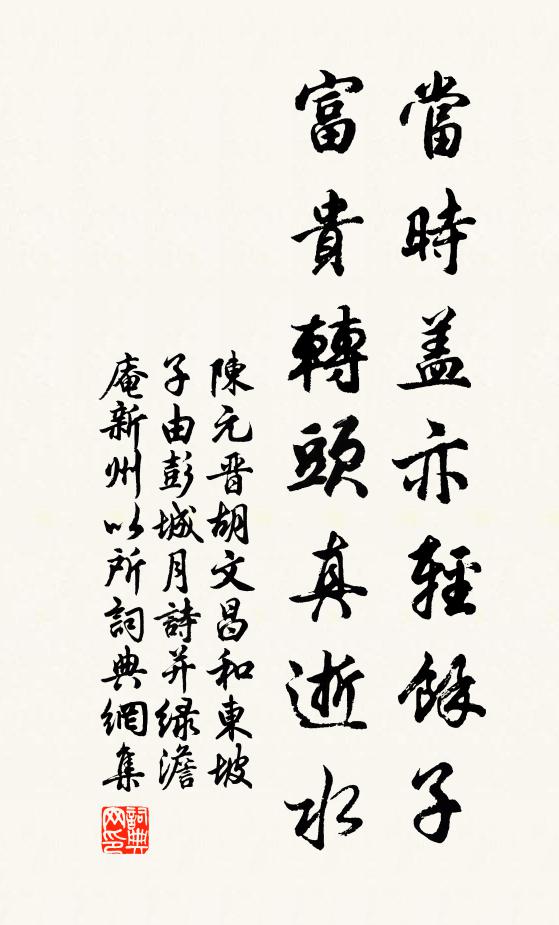 當時蓋亦輕餘子
富貴轉頭真逝水
陳元晋胡文昌和東坡
子由彭城月詩并緑澹
庵新州以所詞典網集
詞典
网印